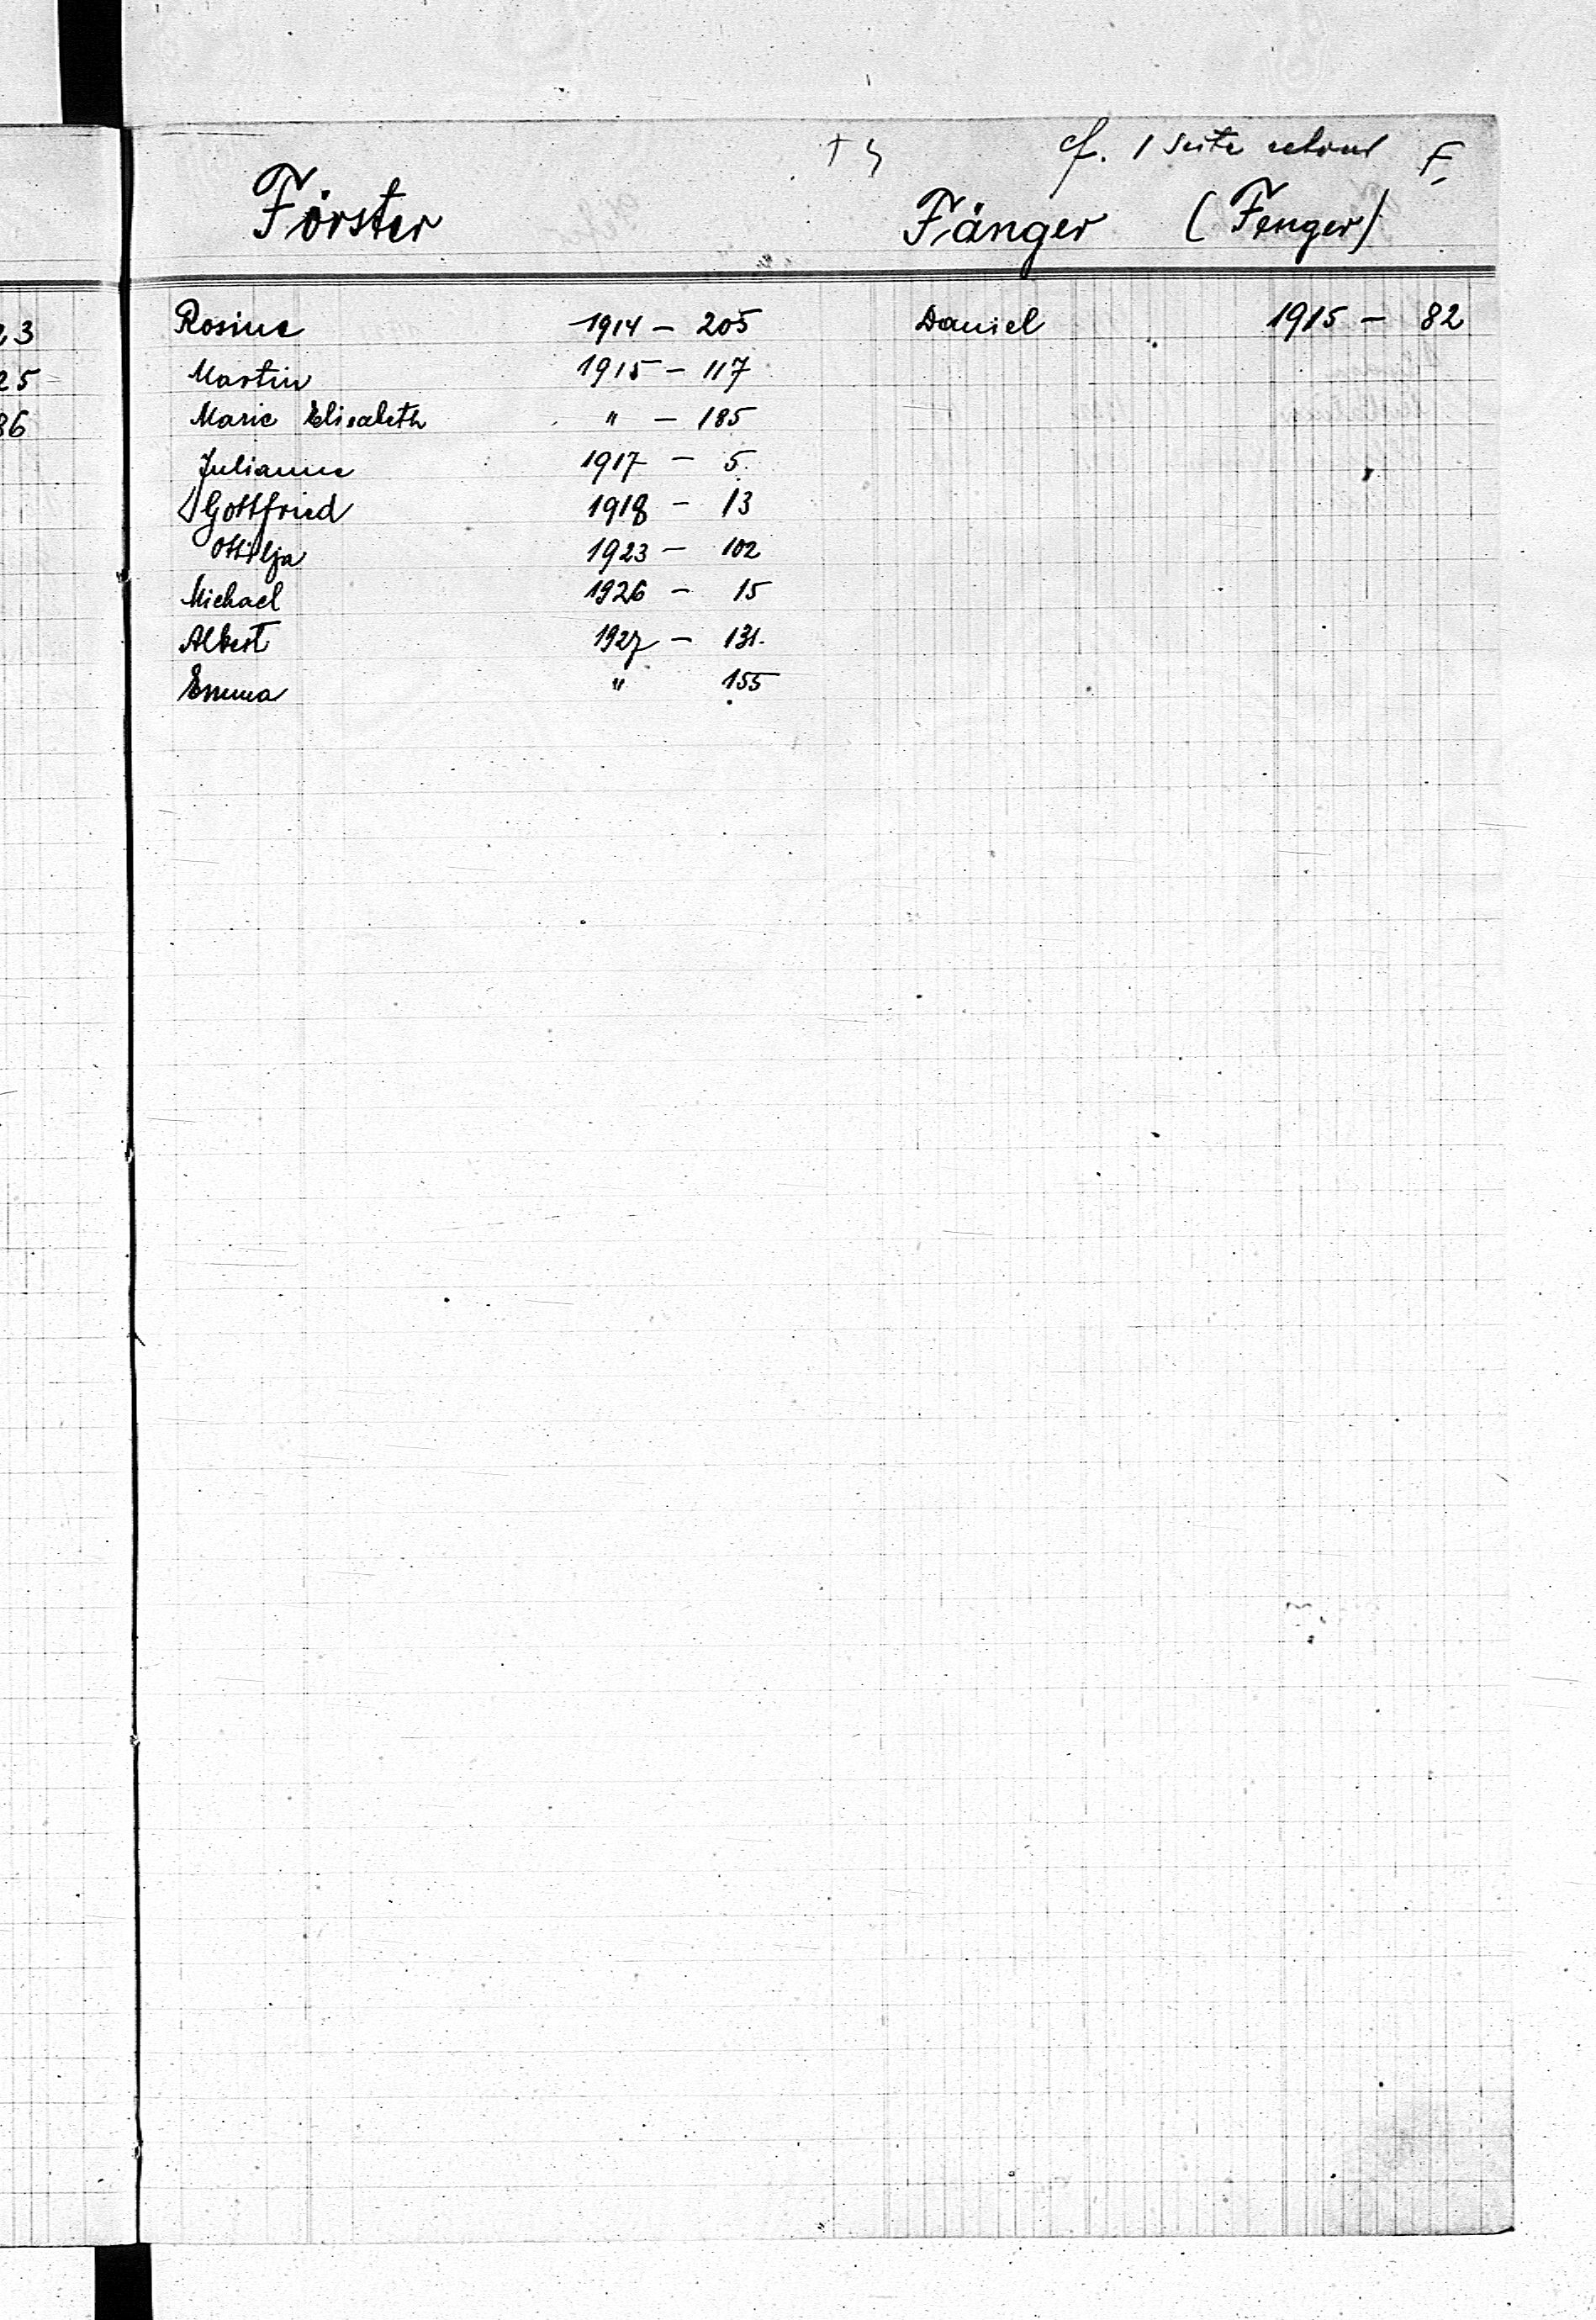 cf. 1 Seite retour F.
Förster
Fänger (Fenger)
Rosine 1914 - 205
Martin 1915 - 117
Marie Elisabeth " - 185
Julianne 1917 - 5.
Gottfried 1918 - 13
Ottilja 1923 - 102
Michael 1926 - 15
Albert 1927 - 131.
Emma " 155
Daniel 1915 - 82
23
25
36